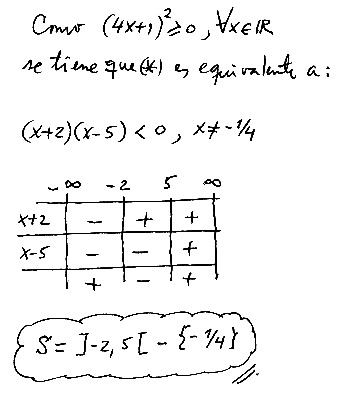 Como (4x+1)²≥0, ∀x∈ℝ
se tiene que (*) es equivalente a:
(x+2)(x-5) < 0, x≠-1/4
-∞ -2 5 ∞
x+2 - + +
x-5 - - +
+ - +
S = ]-2, 5[ - {-1/4}